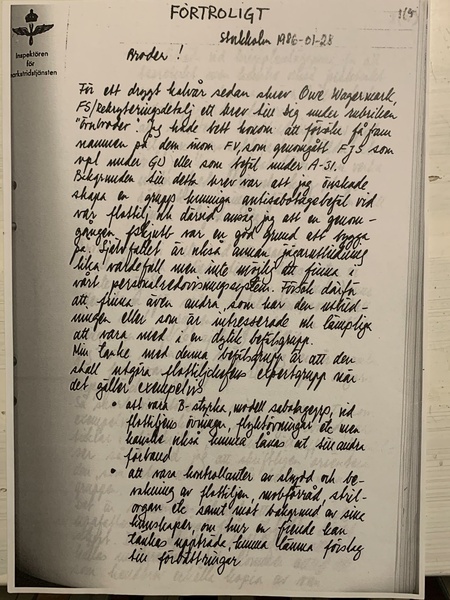 FÖRTROLIGT
1(4)
Inspektören
för
markstridstjänsten
Stockholm 1986-01-28
Broder!
För ett drygt halvår sedan skrev Owe Wagermark,
FS/Rekryteringsdetalj ett brev till Dig under rubriken
"örnbröder". Jag hade bett honom att försöka få fram
namnen på dem inom FV, som genomgått FJS som
vpl under GU eller som befäl under Å-31.
Bakgrunden till detta brev var att jag önskade
skapa en grupp kunniga antisabotagebefäl vid
vår flottilj och därvid ansåg jag att en genom-
gången fskjutb var en god grund att bygga
på. Självfallet är också annan jägarutbildning
lika värdefull men inte möjlig att finna i
vårt personalredovisningssystem. Försök därför
att finna även andra, som har den utbild-
ningen eller som är intresserade och lämpliga
att vara med i en dylik befälsgrupp.
Min tanke med denna befälsgrupp är att den
skall utgöra flottiljchefens expertgrupp när
det gäller exempelvis
• att vara B-styrka, modell sabotagegrp, vid
flottiljens övningar, flygtövningar etc men
kanske också kunna lånas ut till andra
förband
• att vara kontrollanter av skydd och be-
vakning av flottiljen, mobförråd, stril-
organ etc samt mot bakgrund av sina
kunskaper, om hur en fiende kan
tänkas uppträda, kunna lämna förslag
till förbättringar